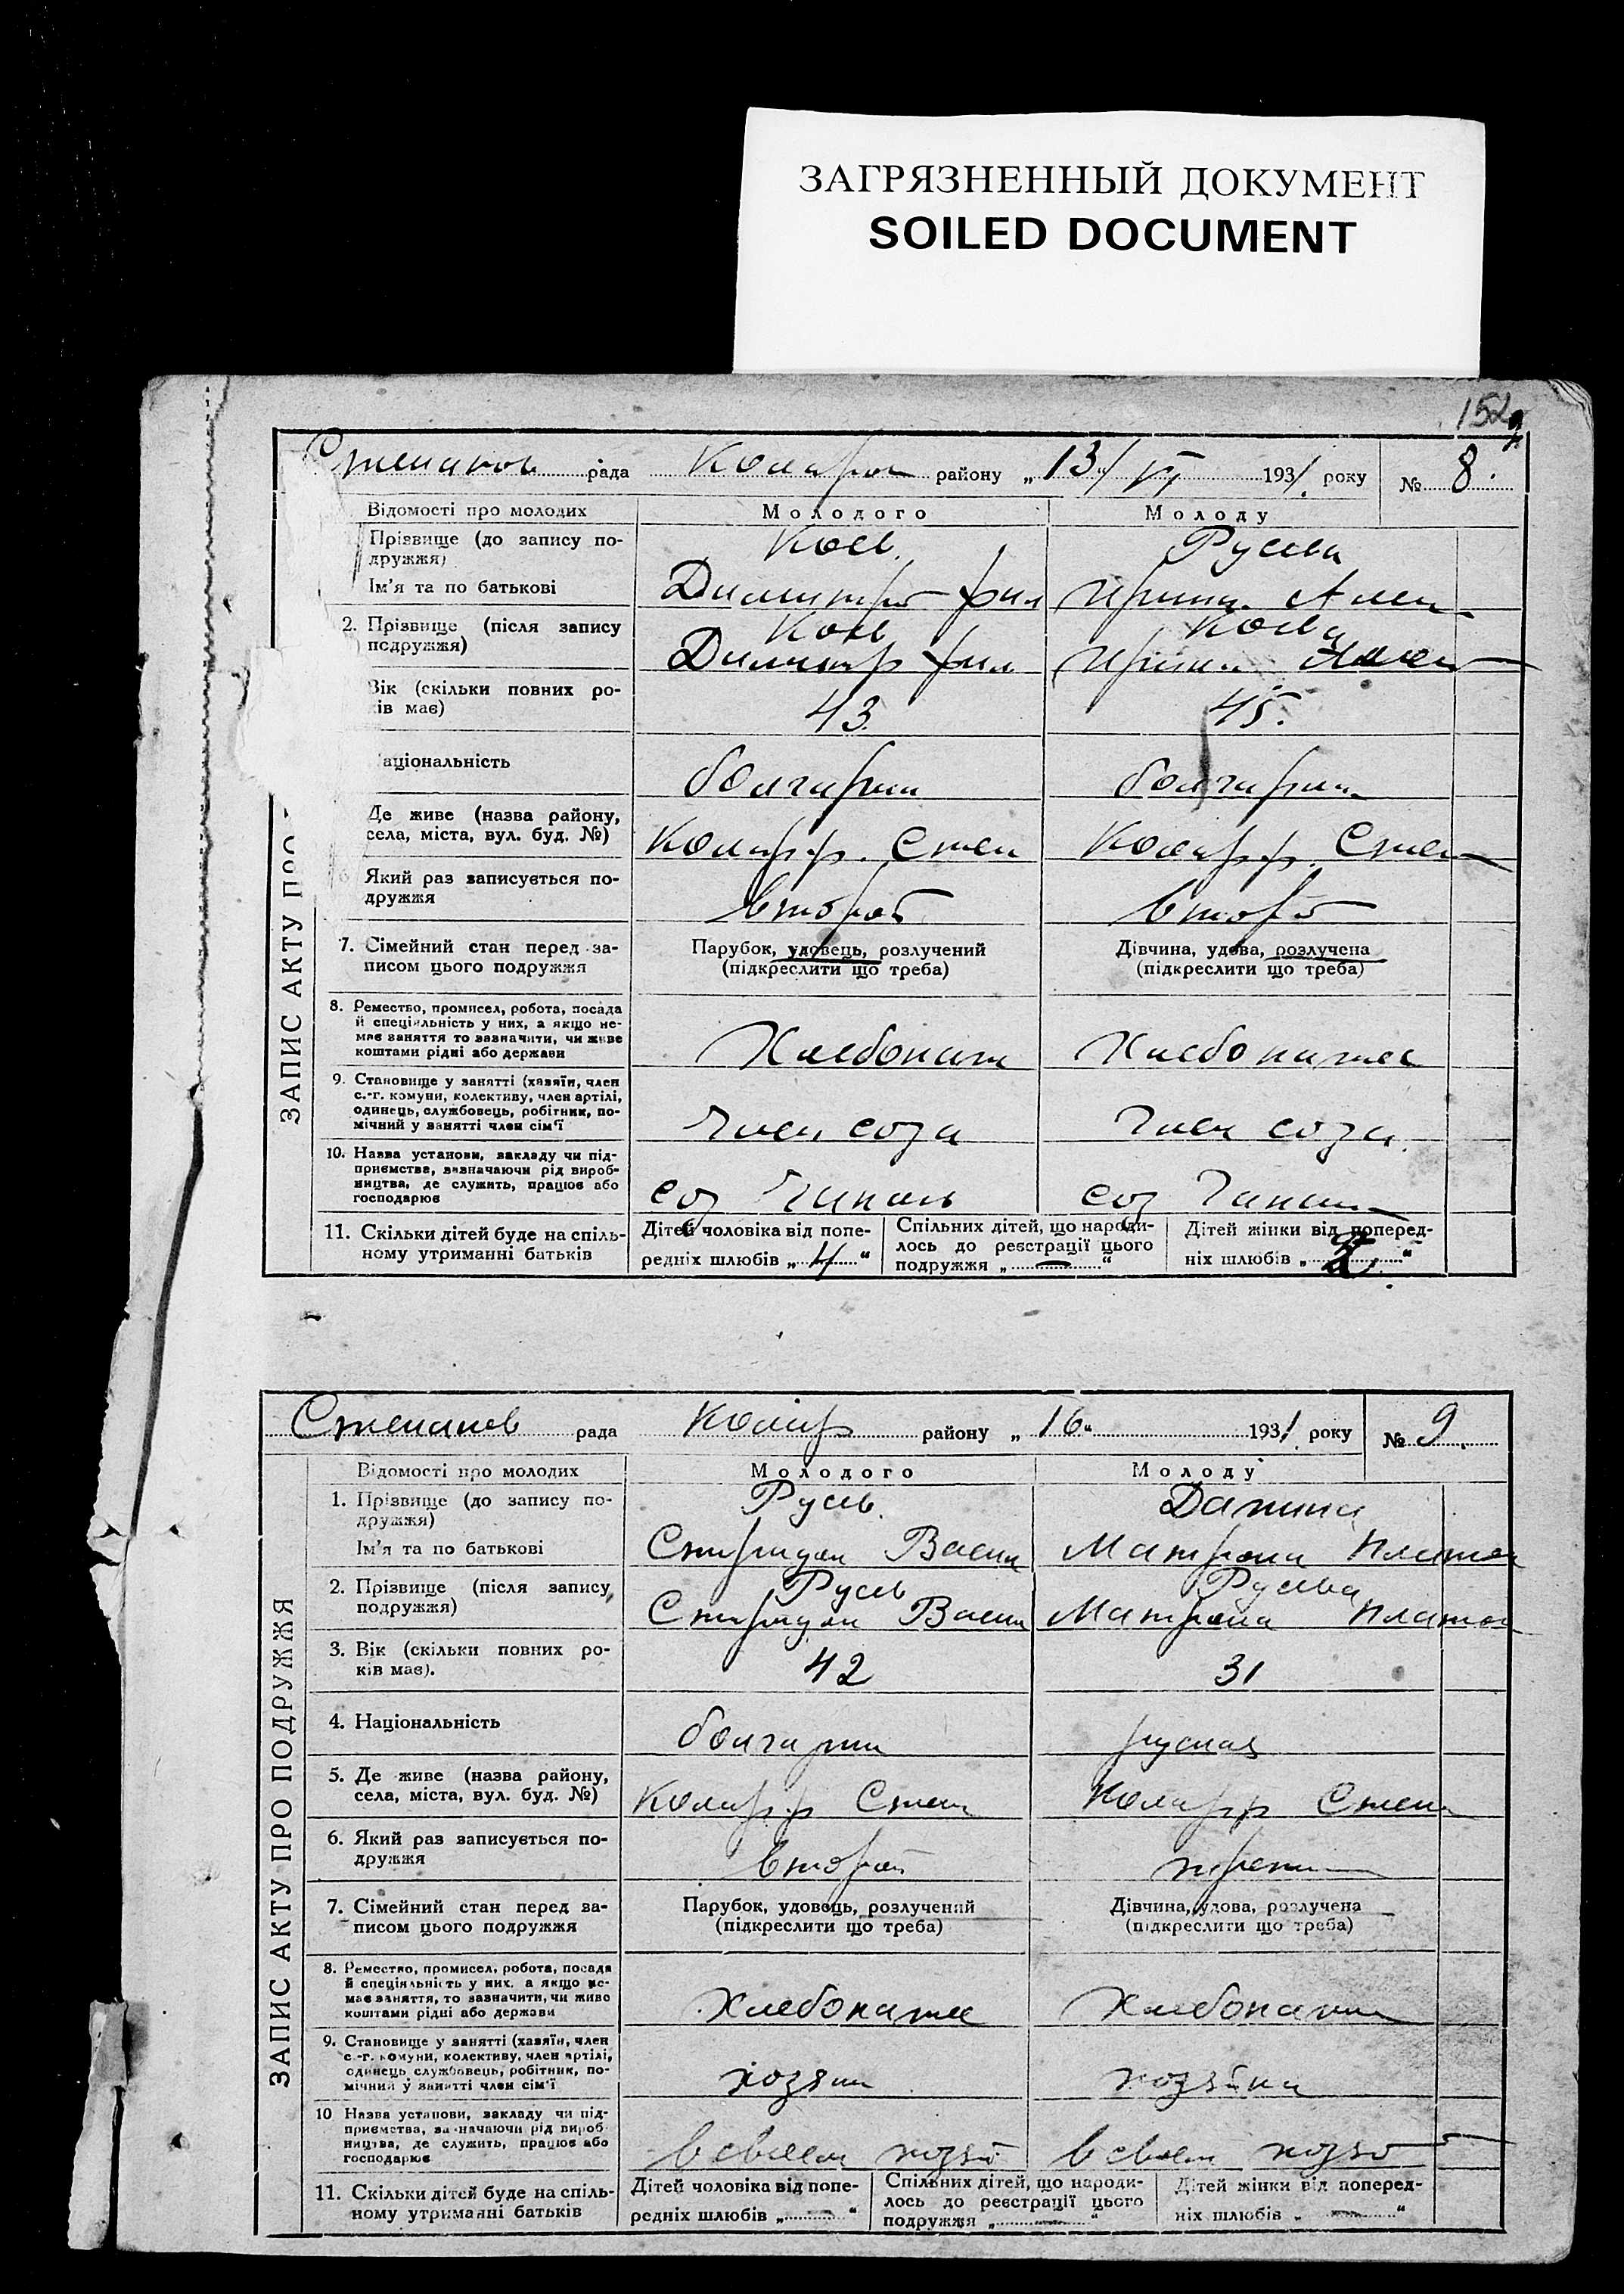 ЗАГРЯЗНЕННЫЙ ДОКУМЕНТ
SOILED DOCUMENT
152
Степанов рада Колар район у „13" VI 1931 року № 8.
Відомості про молодих Молодого Молоду
Прізвище (до запису по-
дружжя) Коев. Русева
Ім'я та по батькові Димитр Фил Ирина Алек
2. Прізвище (після запису
подружжя) Коев Коева
Димитр Фил Ирина
Вік (скільки повних ро-
ків має) 43. 45.
аціональність болгарин болгарин
Де живе (назва району,
села, міста, вул. буд. №) Колар р. Степ Колар р. Степ
Який раз записується по-
дружжя второй второй
7. Сімейний стан перед за-
писом цього подружжя
Парубок, удовець, розлучений
(підкреслити що треба)
Дівчина, удова, розлучена
(підкреслити що треба)
8. Ремество, промисел, робота, посада
й спеціяльність у них, а якщо не-
має заняття то зазначити, чи живе
коштами рідні або держави Хлебопаш Хлебопашес
9. Становище у занятті (хазяїн, член
с.-г. комуни, колективу, член артілі,
одинець, службовець, робітник, по-
мічний у занятті член сім'ї Член соза Член соза.
10. Назва установи, закладу чи під-
приємства, визначаючи рід вироб-
ництва, де служить, працює або
господарює соз соз
11. Скільки дітей буде на спіль-
ному утриманні батьків
Дітей чоловіка від попе-
редніх шлюбів „ 4 “
Спільних дітей, що народи-
лось до реєстрації цього
подружжя „ — “
Дітей жінки від поперед-
ніх шлюбів „ 2 “
ЗАПИС АКТУ ПРО
Степанов рада Колар району „ 16 " 1931 року № 9.
Відомості про молодих Молодого Молоду
1. Прізвище (до запису по-
дружжя) Русев.
Ім'я та по батькові Спиридон Васил Матрона Платон
2. Прізвище (після запису
подружжя) Русев Русева
Спиридон Васил Матрона Платон
3. Вік (скільки повних ро-
ків має). 42 31
4. Національність болгарин руская
5. Де живе (назва району,
села, міста, вул. буд. №) Колар р Степ Колар р Степ
6. Який раз записується по-
дружжя второй
7. Сімейний стан перед за-
писом цього подружжя
Парубок, удовець, розлучений
(підкреслити що треба)
Дівчина, удова, розлучена
(підкреслити що треба)
8. Ремество, промисел, робота, посада
й спеціяльність у них, а якщо не-
має заняття, то зазначити, чи живе
коштами рідні або держави Хлебопаше Хлебопаши
9. Становище у занятті (хазяїн, член
с.-г. комуни, колективу, член артілі,
одинець, службовець, робітник, по-
мічний у занятті член сім'ї хозяин хозяйка
10 Назва установи, закладу чи під-
приємства, зазначаючи рід вироб
ництва, де служить, працює або
господарює в своем хозяй в своем хозяй
11. Скільки дітей буде на спіль-
ному утриманні батьків
Дітей чоловіка від попе-
редніх шлюбів „ — “
Спільних дітей, що народи-
лось до реєстрації цього
подружжя „ — “
Дітей жінки від поперед-
ніх шлюбів „ — “
ЗАПИС АКТУ ПРО ПОДРУЖЖЯ